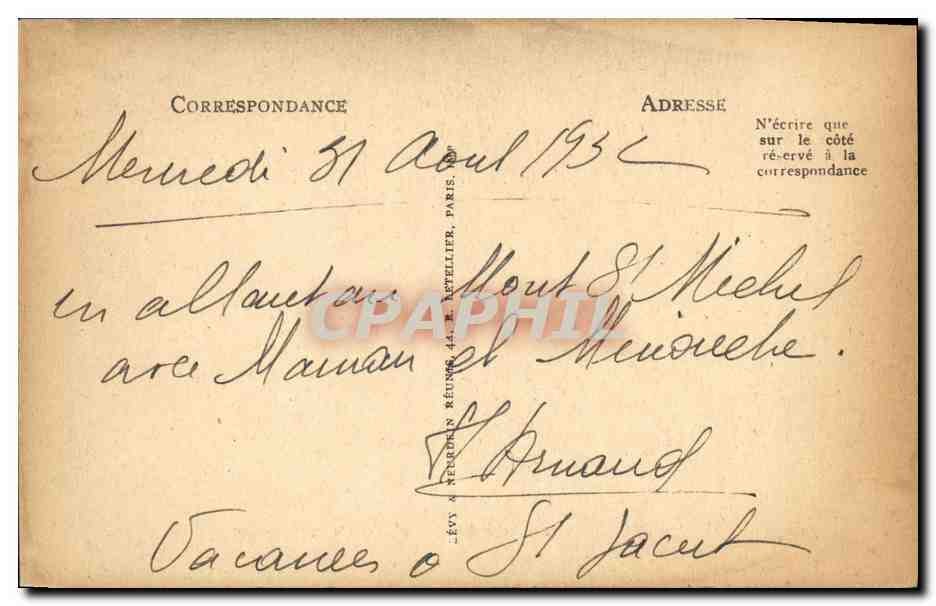 CORRESPONDANCE
ADRESSE
N'écrire que
sur le côté
réservé à la
correspondance
Mercredi 31 Aout 1932
en allant au Mont St Michel
avec Maman et Minouche.
Arnaud
Vacances à St Jacut
LÉVY & NEURDEIN RÉUNIS, 44, R. LETELLIER, PARIS. IMP
CPAPHIL